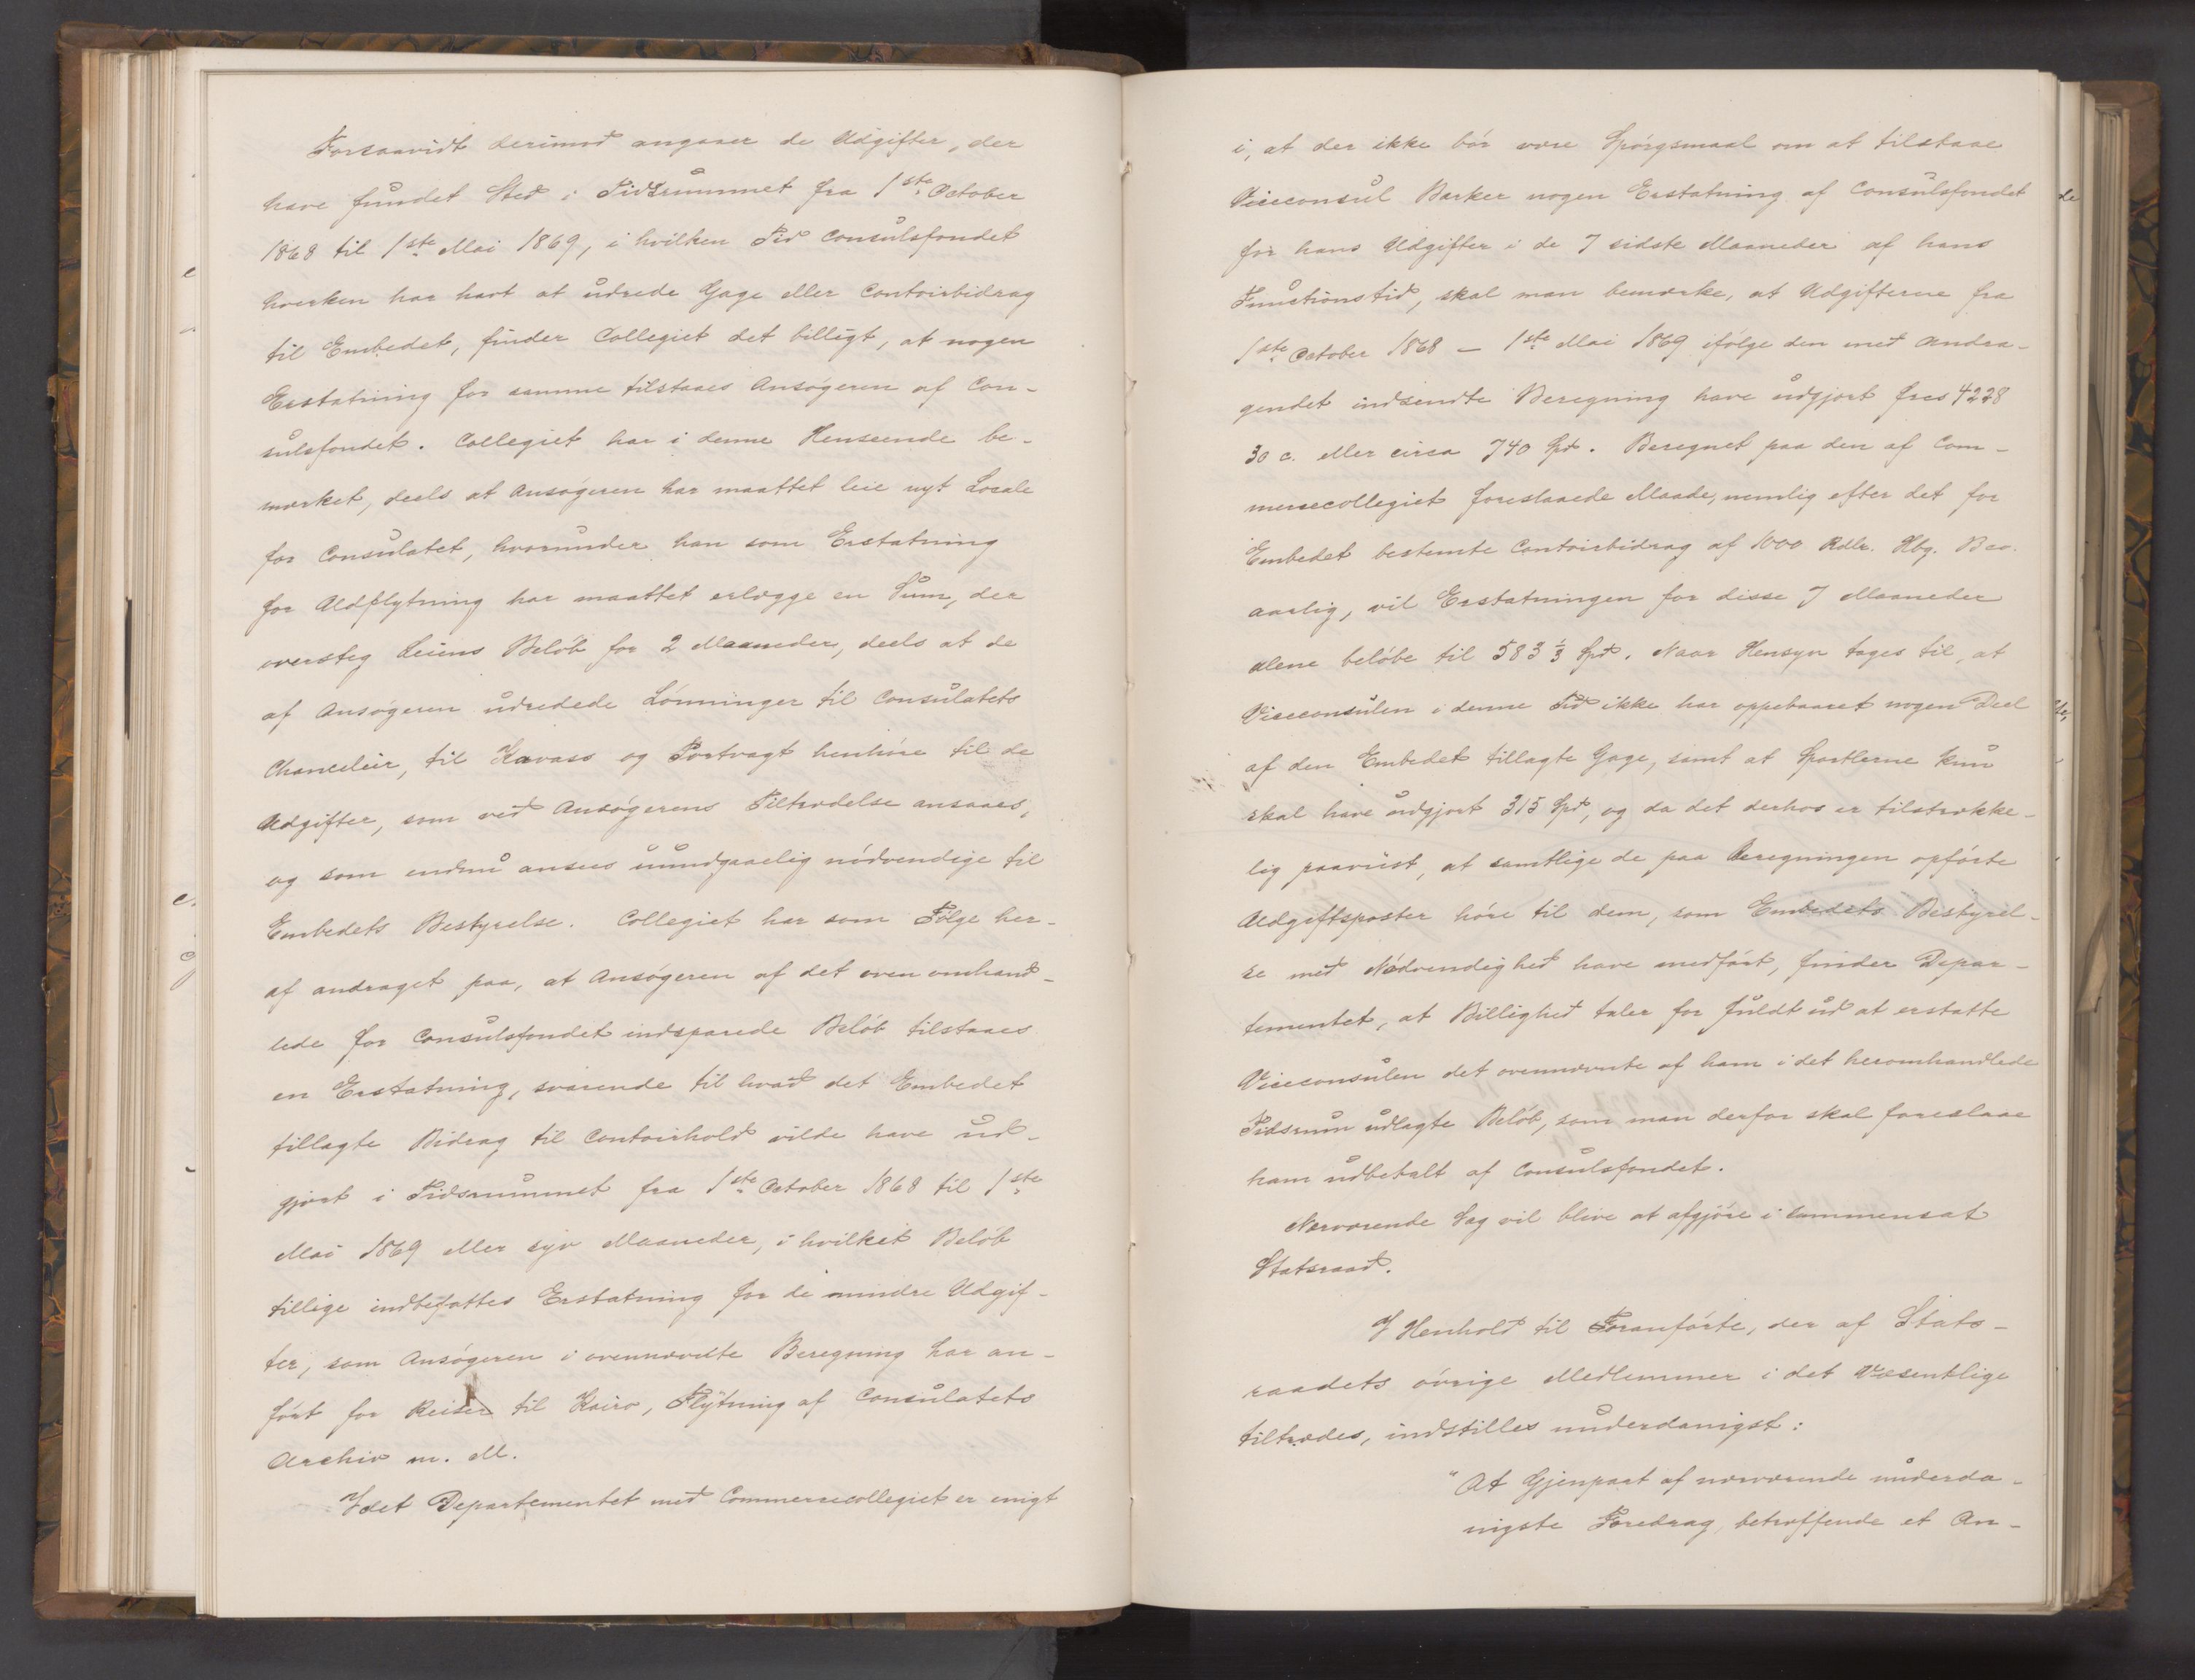 Forsaavidt derimod angaaer de Udgifter, der
have fundet Sted i Tidsrummet fra 1ste October
1868 til 1ste Mai 1869, i hvilken Tid Consulsfondet
hverken har havt at udrede Gage eller Contoirbidrag
til Embedet, finder Collegiet det billigt, at nogen
Erstatning for samme tilstaaes Ansøgeren af Con-
sulsfondet. Collegiet har i denne Henseende be-
mærket, deels at Ansøgeren har maattet leie nyt Locale
for Consulatet, hvorunder han som Erstatning
for Udflytning har maattet erlægge en Sum, der
oversteg Leiens Beløb for 2 Maaneder, deels at de
af Ansøgeren udredede Lønninger til Consulatets
Chancelier, til Kavass og Portvagt henhøre til de
Udgifter, som ved Ansøgerens Tiltrædelse ansaaes,
og som endnu ansees uundgaaelig nødvendige til
Embedets Bestyrelse. Collegiet har som Følge her-
af andraget paa, at Ansøgeren af det oven omhand-
lede for Consulsfondet indsparede Beløb tilstaaes
en Erstatning, svarende til hvad det Embedet
tillagte Bidrag til Contoirhold vilde have ud-
gjort i Tidsrummet fra 1ste October 1868 til 1ste
Mai 1869 eller syv Maaneder, i hvilket Beløb
tillige indbefattes Erstatning for de mindre Udgif-
ter, som Ansøgeren i ovennævnte Beregning har an-
ført for Reiser til Kairo, Flytning af Consulatets
Archiv m. M.
Idet Departementet med Commercecollegiet er enigt
i, at der ikke bør være Spørgsmaal om at tilstaae
Viceconsul Barker nogen Erstatning af Consulsfondet
for hans Udgifter i de 7 sidste Maaneder af hans
Functionstid, skal man bemærke, at Udgifterne fra
1ste October 1868 — 1ste Mai 1869 ifølge den med Andra-
gendet indsendte Beregning have udgjort frcs 4228
30 c. eller circa 740 Spd. Beregnet paa den af Com-
mercecollegiet foreslaaede Maade, nemlig efter det for
Embedet bestemte Contoirbidrag af 1000 Rdlr. Hbg. Bco.
aarlig, vil Erstatningen for disse 7 Maaneder
alene beløbe til 583 1/3 Spd. Naar Hensyn tages til, at
Viceconsulen i denne Tid ikke har oppebaaret nogen Deel
af den Embedet tillagte Gage, samt at Sportlerne kun
skal have udgjort 315 Spd, og da det derhos er tilstrække-
lig paaviist, at samtlige de paa Beregningen opførte
Udgiftsposter høre til dem, som Embedets Bestyrel-
se med Nødvendighed have medført, finder Depar-
tementet, at Billighed taler for fuldt ud at erstatte
Viceconsulen det ovennævnte af ham i det heromhandlede
Tidsrum udlagte Beløb, som man derfor skal foreslaae
ham udbetalt af Consulsfondet.
Nærværende Sag vil blive at afgjøre i sammensat
Statsraad.
I Henhold til Foranførte, der af Stats-
raadets øvrige Medlemmer i det Væsentlige
tiltrædes, indstilles underdanigst:
"At Gjenpart af nærværende underda-
nigste Foredrag, betræffende et An-